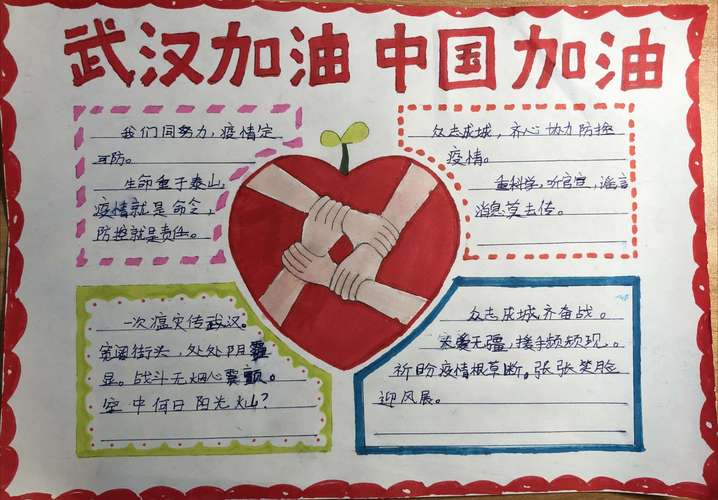 武汉加油 中国加油
我们同努力,疫情定
可防。
生命重于泰山,
疫情就是命令,
防控就是责任。
众志成城,齐心协力防控
疫情。
重科学,听官宣,谣言
消息莫去传。
一次瘟灾传武汉。
宽阔街头,处处阴霾
显。战斗无烟心
空中何日阳光灿?
众志成城齐奋战。
大爱无疆,援手频频现。
祈盼疫情根草断。张张笑脸
迎风展。